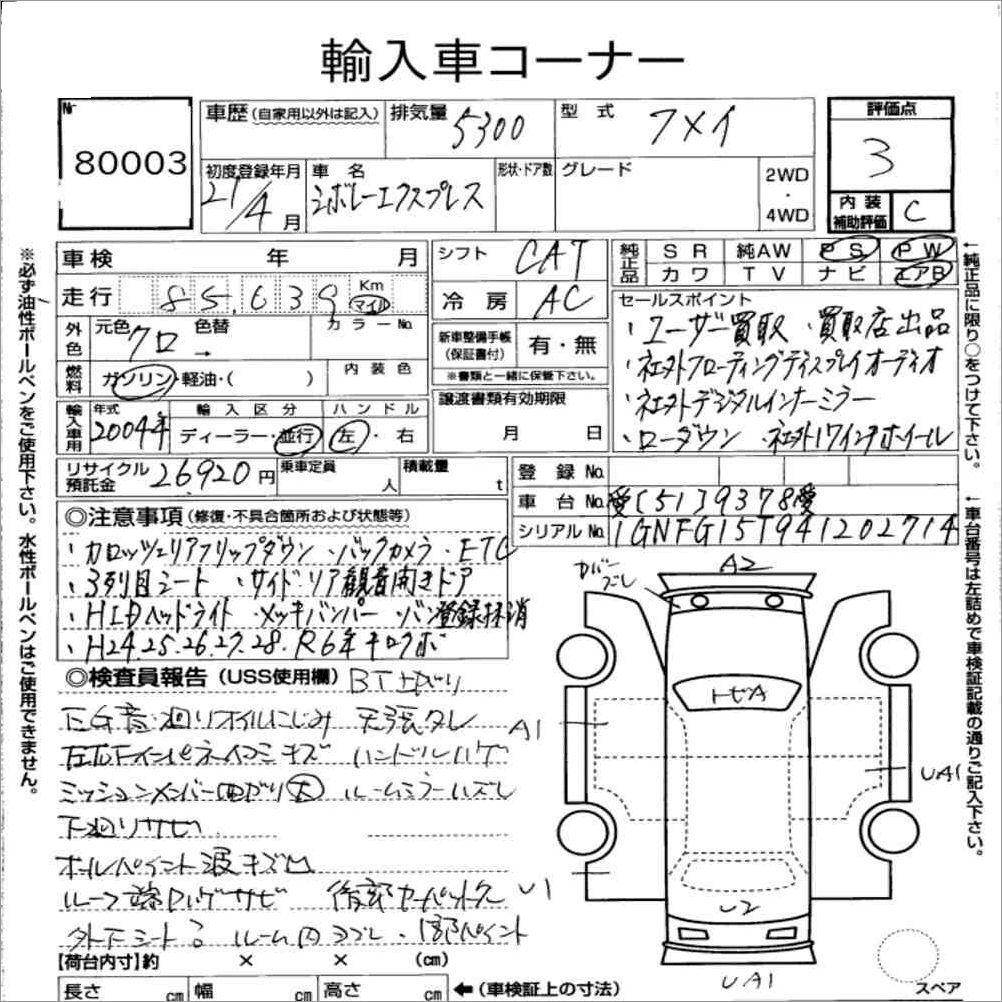 輸入車コーナー
Nr 80003
車歴 (自家用以外は記入) 排気量 5300 型式 フメイ
評価点 3
初度登録年月 21/4月 車名 シボレーエクスプレス 形状・ドア数 グレード 2WD・4WD
内装補助評価 C
車検 年 月
走行 85,639 Km マイル
外色 元色 クロ 色替 → カラーNo.
燃料 ガソリン・軽油・( ) 内装色
輸入車用 年式 2004年 輸入区分 ディーラー・並行 ハンドル 左・右
リサイクル預託金 26920円 乗車定員 人 積載量 t
シフト CAT
冷房 AC
新車整備手帳(保証書付) 有・無
※書類と一緒に保管下さい。
譲渡書類有効期限
月 日
純正品 SR 純AW PS PW
カワ TV ナビ エアB
セールスポイント
・ユーザー買取 ・買取店出品
・社外フローティングディスプレイオーディオ
・社外デジタルインナーミラー
・ローダウン ・社外17インチホイール
登録No.
車台No. 愛[51]9378愛
シリアルNo. 1GNFG15T941202714
◎注意事項 (修復・不具合箇所および状態等)
・カロッツェリアフリップダウン ・バックカメラ ・ETC
・3列目シート ・サイド・リア観音開きドア
・HIDヘッドライト メッキバンパー バン登録抹消
・H24.25.26.27.28.R6年キロクボ
◎検査員報告 (USS使用欄)
EG音・廻りオイルにじみ 天張タレ
キズ ハンドルハゲ
ミッションメンバー曲がり大 ルームミラーハズレ
下廻りサビ
オールペイント 波キズ凹
ルーフ端ハゲサビ 後部カーペット欠
ルーム内ヨゴレ・1部ペイント
【荷台内寸】約 × × (cm)
長さ cm 幅 cm 高さ cm ←(車検証上の寸法)
A2
カバーズレ
トビA
A1
UA1
U1
U2
UA1
スペア
※必ず油性ボールペンをご使用下さい。水性ボールペンはご使用できません。
←純正品に限り○をつけて下さい。
←車台番号は左詰めで車検証記載の通りご記入下さい。